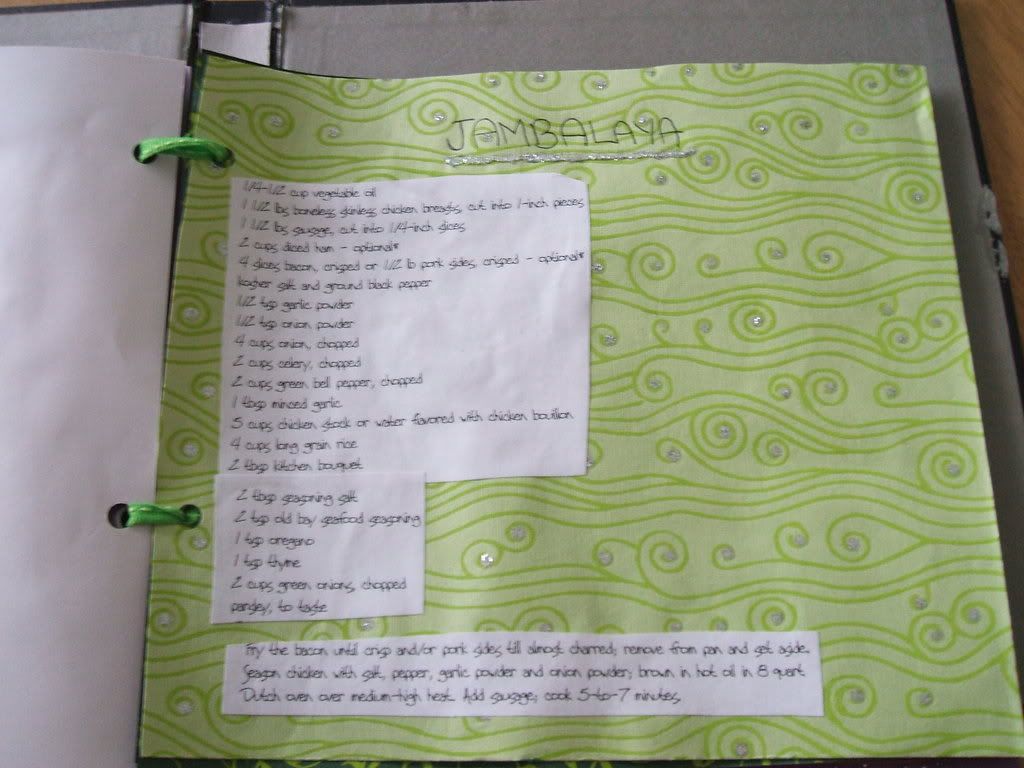 JAMBALAYA
1/4-1/2 cup vegetable oil
1 1/2 lbs boneless skinless chicken breasts, cut into 1-inch pieces
1 1/2 lbs sausage, cut into 1/4-inch slices
2 cups diced ham - optional*
4 slices bacon, crisped or 1/2 lb pork sides, crisped - optional*
kosher salt and ground black pepper
1/2 tsp garlic powder
1/2 tsp onion powder
4 cups onion, chopped
2 cups celery, chopped
2 cups green bell pepper, chopped
1 tbsp minced garlic
5 cups chicken stock or water flavored with chicken bouillon
4 cups long grain rice
2 tbsp kitchen bouquet
2 tbsp seasoning salt
2 tsp old bay seafood seasoning
1 tsp oregano
1 tsp thyme
2 cups green onions, chopped
parsley, to taste
Fry the bacon until crisp and/or pork sides till almost charred; remove from pan and set aside.
Season chicken with salt, pepper, garlic powder and onion powder; brown in hot oil in 8 quart
Dutch oven over medium-high heat. Add sausage; cook 5-to-7 minutes.